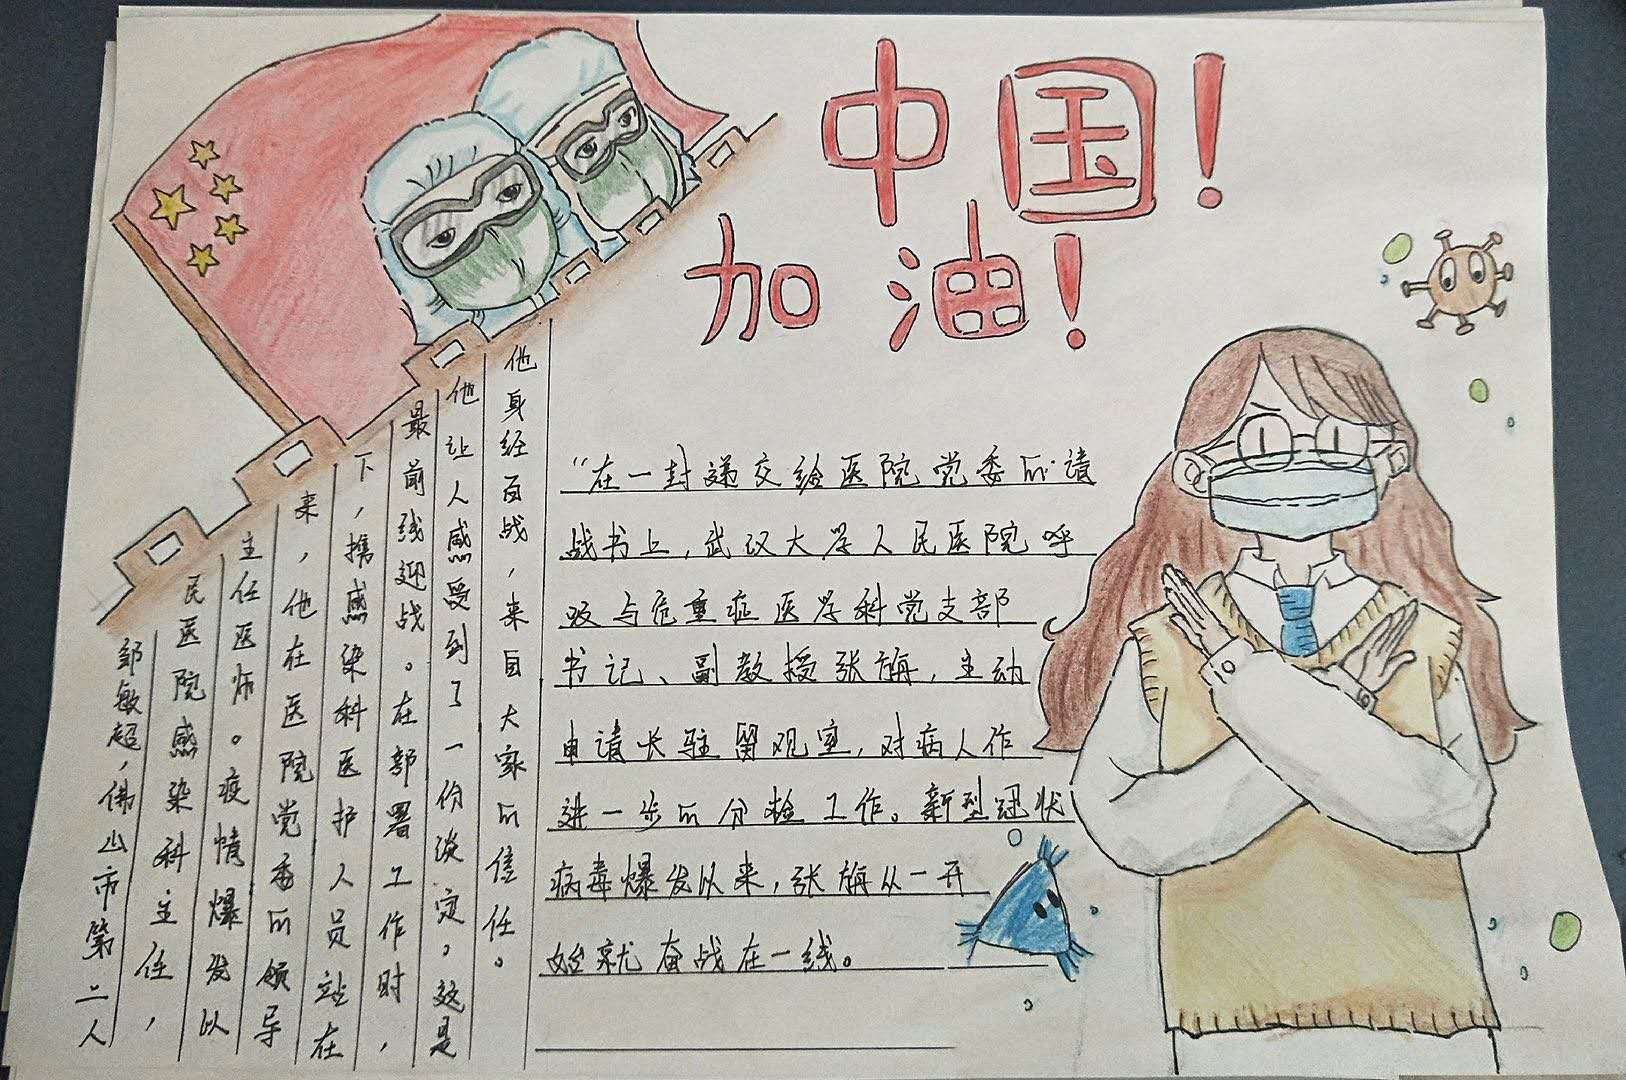 中国！
加油！
邹敏超，佛山市第二人
民医院感染科主任，
主任医师。疫情爆发以
来，他在医院党委的领导
下，携感染科医护人员站在
最前线迎战。在部署工作时，
他让人感受到了一份淡定。这是
他身经百战，来自大家的信任。
“在一封递交给医院党委的请
战书上，武汉大学人民医院呼
吸与危重症医学科党支部
书记、副教授张旃，主动
申请长驻留观室，对病人作
进一步的分检工作。新型冠状
病毒爆发以来，张旃从一开
始就奋战在一线。